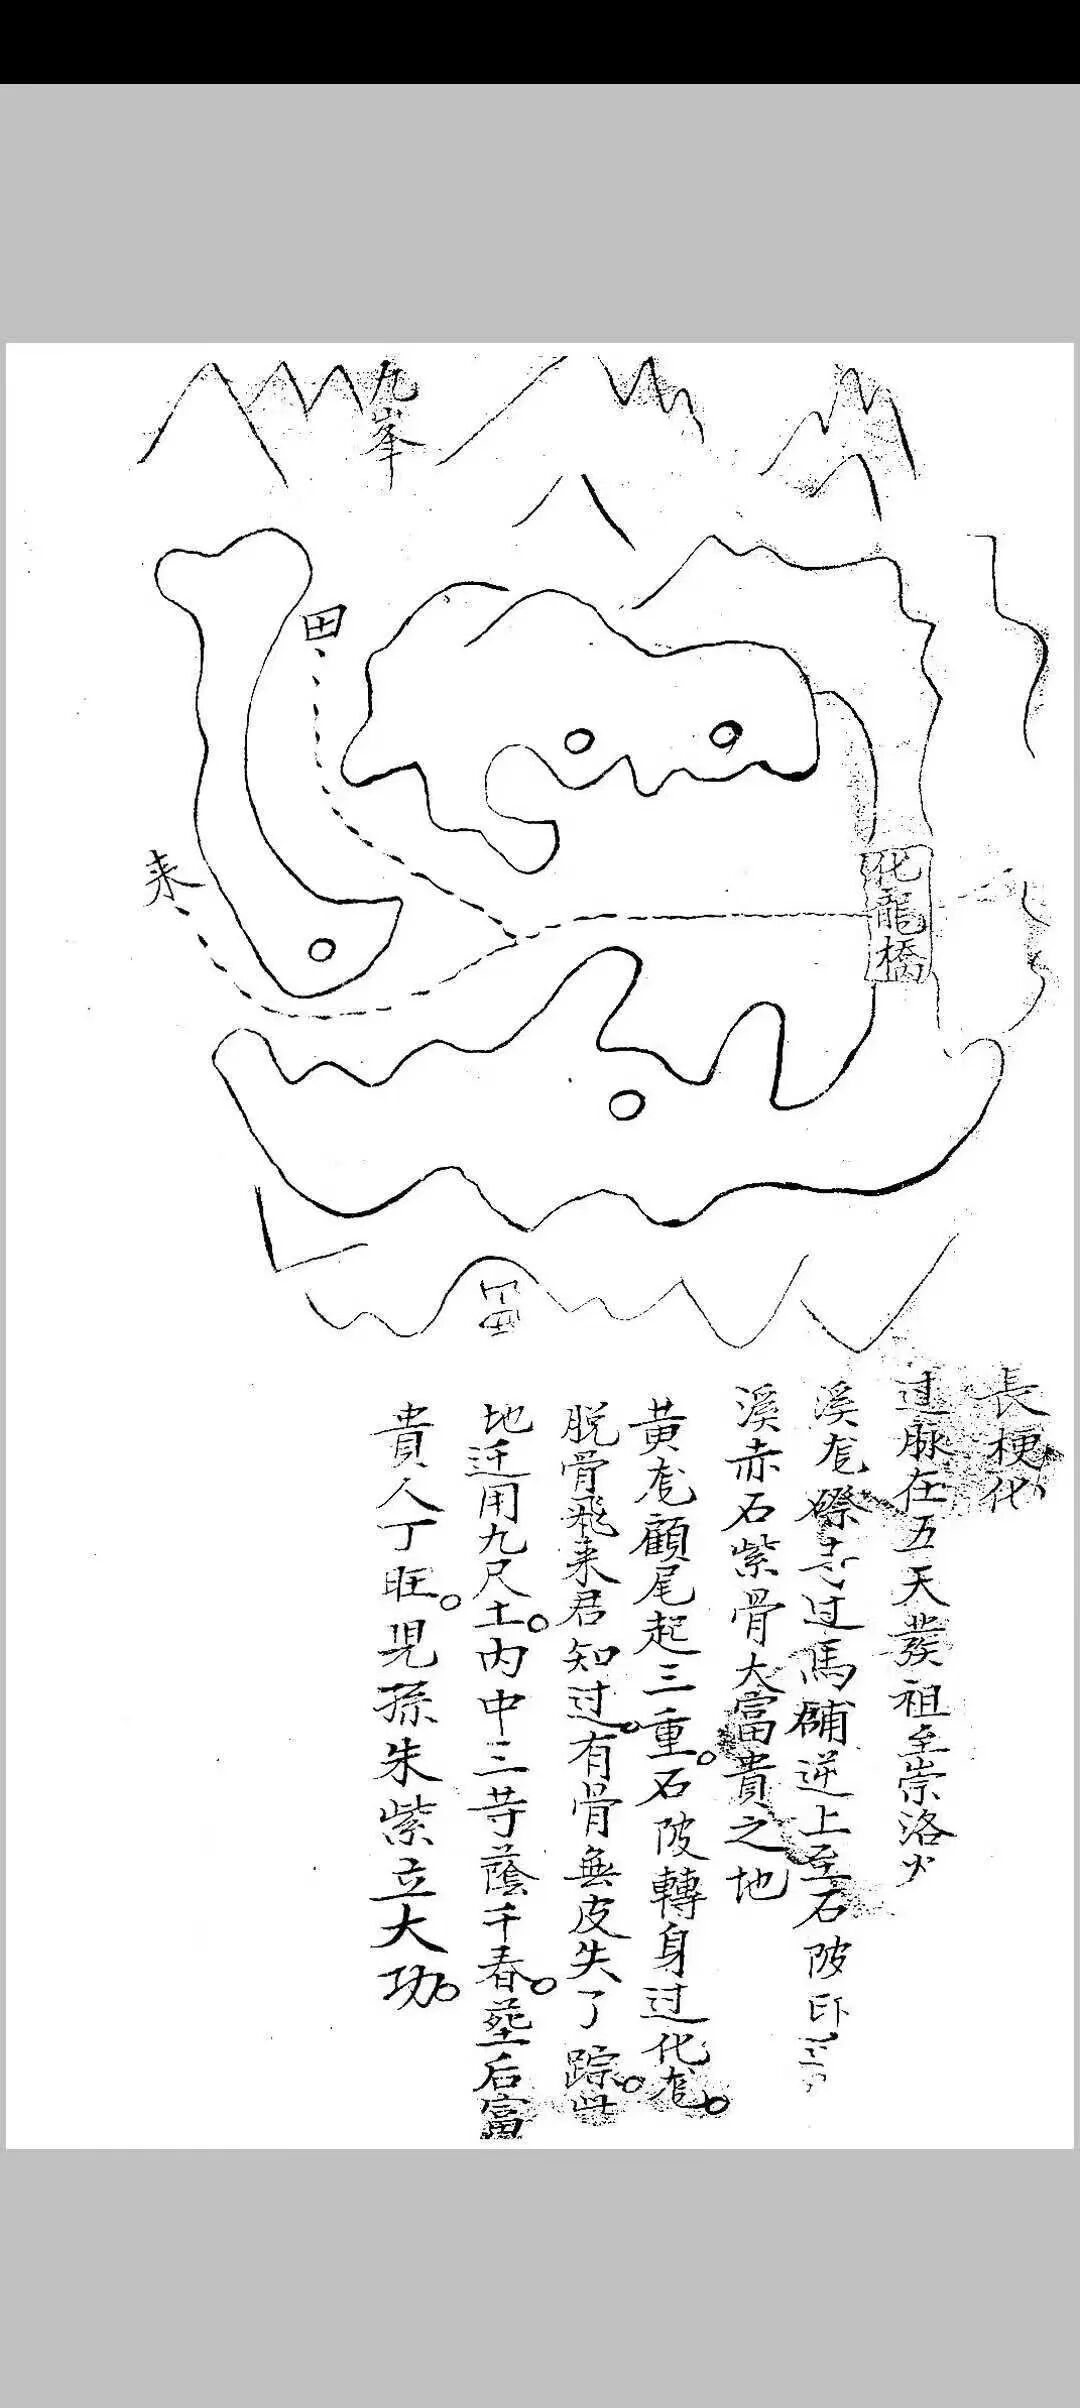 九峯
田
来
化龍橋
長梗化
过脉在五天發祖至崇洛火
溪厐磜去过馬鋪逆上至石陂卧
溪赤石紫骨大富貴之地
黄厐顧尾起三重。石陂轉身过化厐。
脱骨飛来君知过。有骨無皮失了踪。此
地迁用九尺土。内中三芋蔭千春。塟后富
貴人丁旺。児孫朱紫立大功。